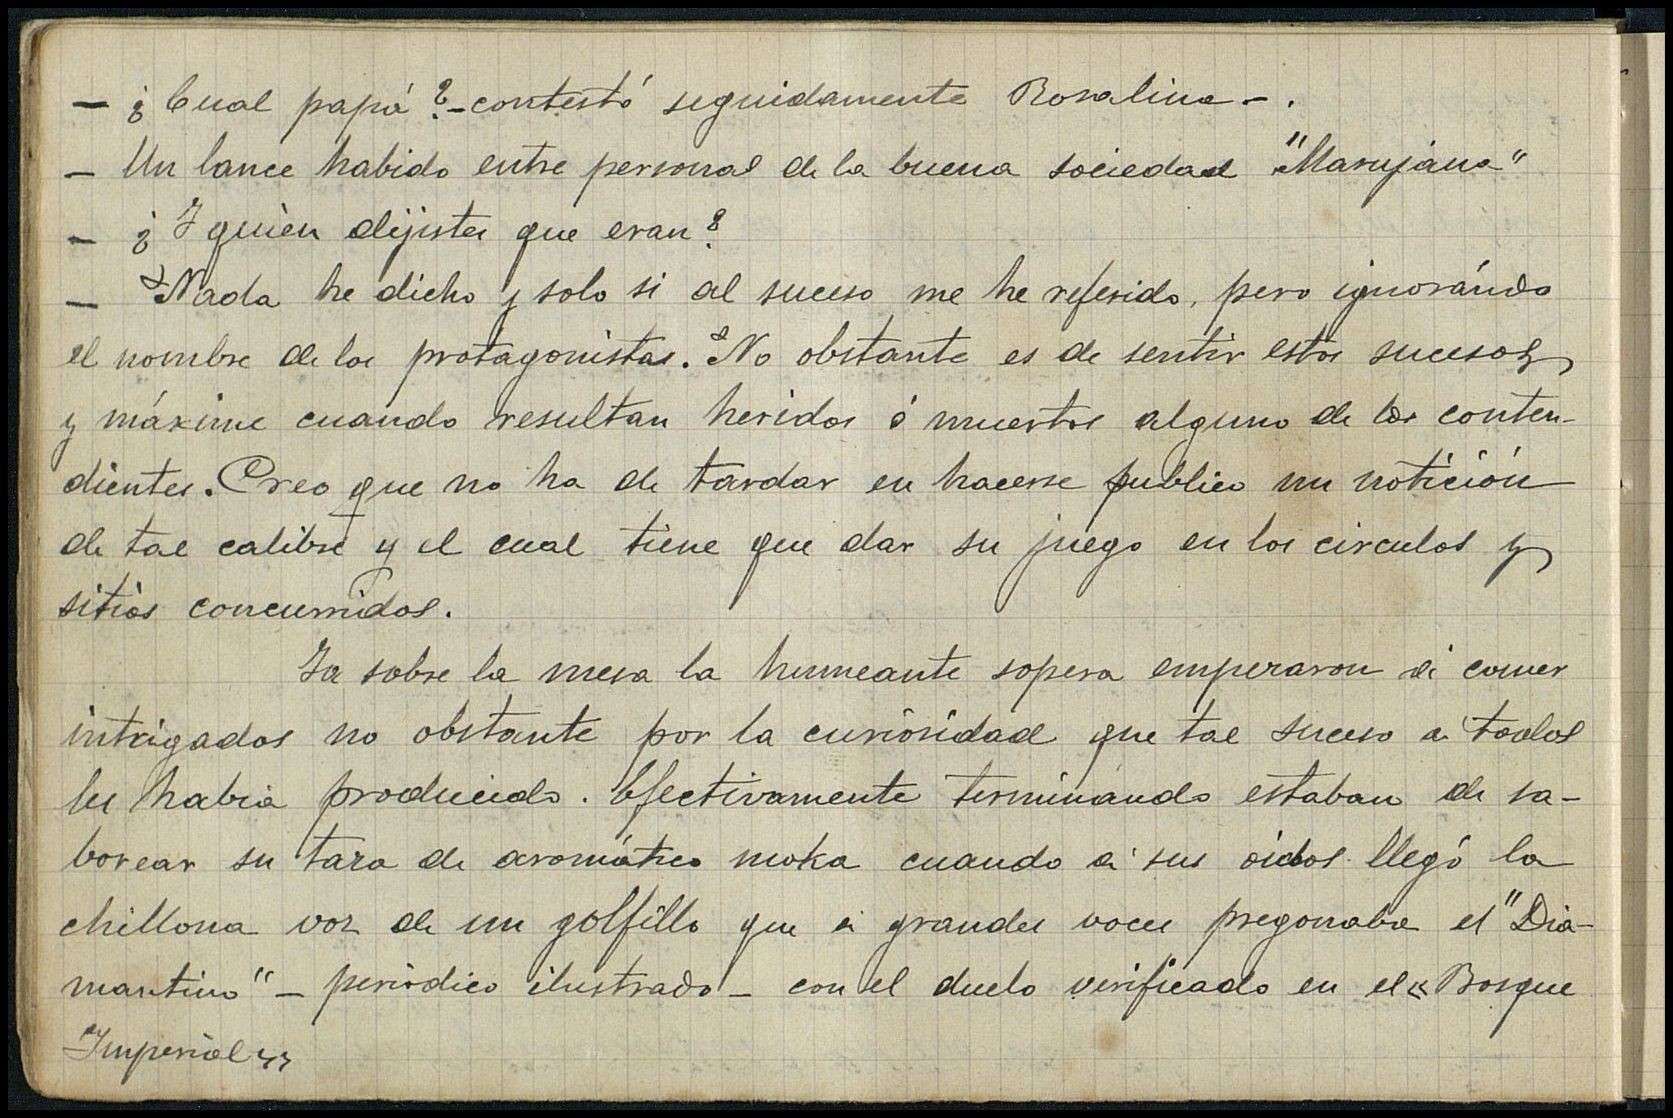 — ¿Cual papá?—contestó seguidamente Rosalina—.
— Un lance habido entre personas de la buena sociedad "Marujana"
— ¿Y quién dijistes que eran?
— Nada he dicho y solo si al suceso me he referido, pero ignorándo
el nombre de los protagonistas. No obstante es de sentir estos sucesos
y máxime cuando resultan heridos ó muertos alguno de los conten-
dientes. Creo que no ha de tardar en hacerse publico un notición
de tal calibre y el cual tiene que dar su juego en los circulos y
sitios concurridos.
Ya sobre la mesa la humeante sopera empezaron á comer
intrigados no obstante por la curiosidad que tal suceso á todos
les habia producido. Efectivamente terminando estaban de sa-
borear su taza de aromático moka cuando á sus oidos llegó la
chillona voz de un golfillo que á grandes voces pregonaba el "Dia-
mantino" — periódico ilustrado — con el duelo verificado en el «Bosque
Imperial»